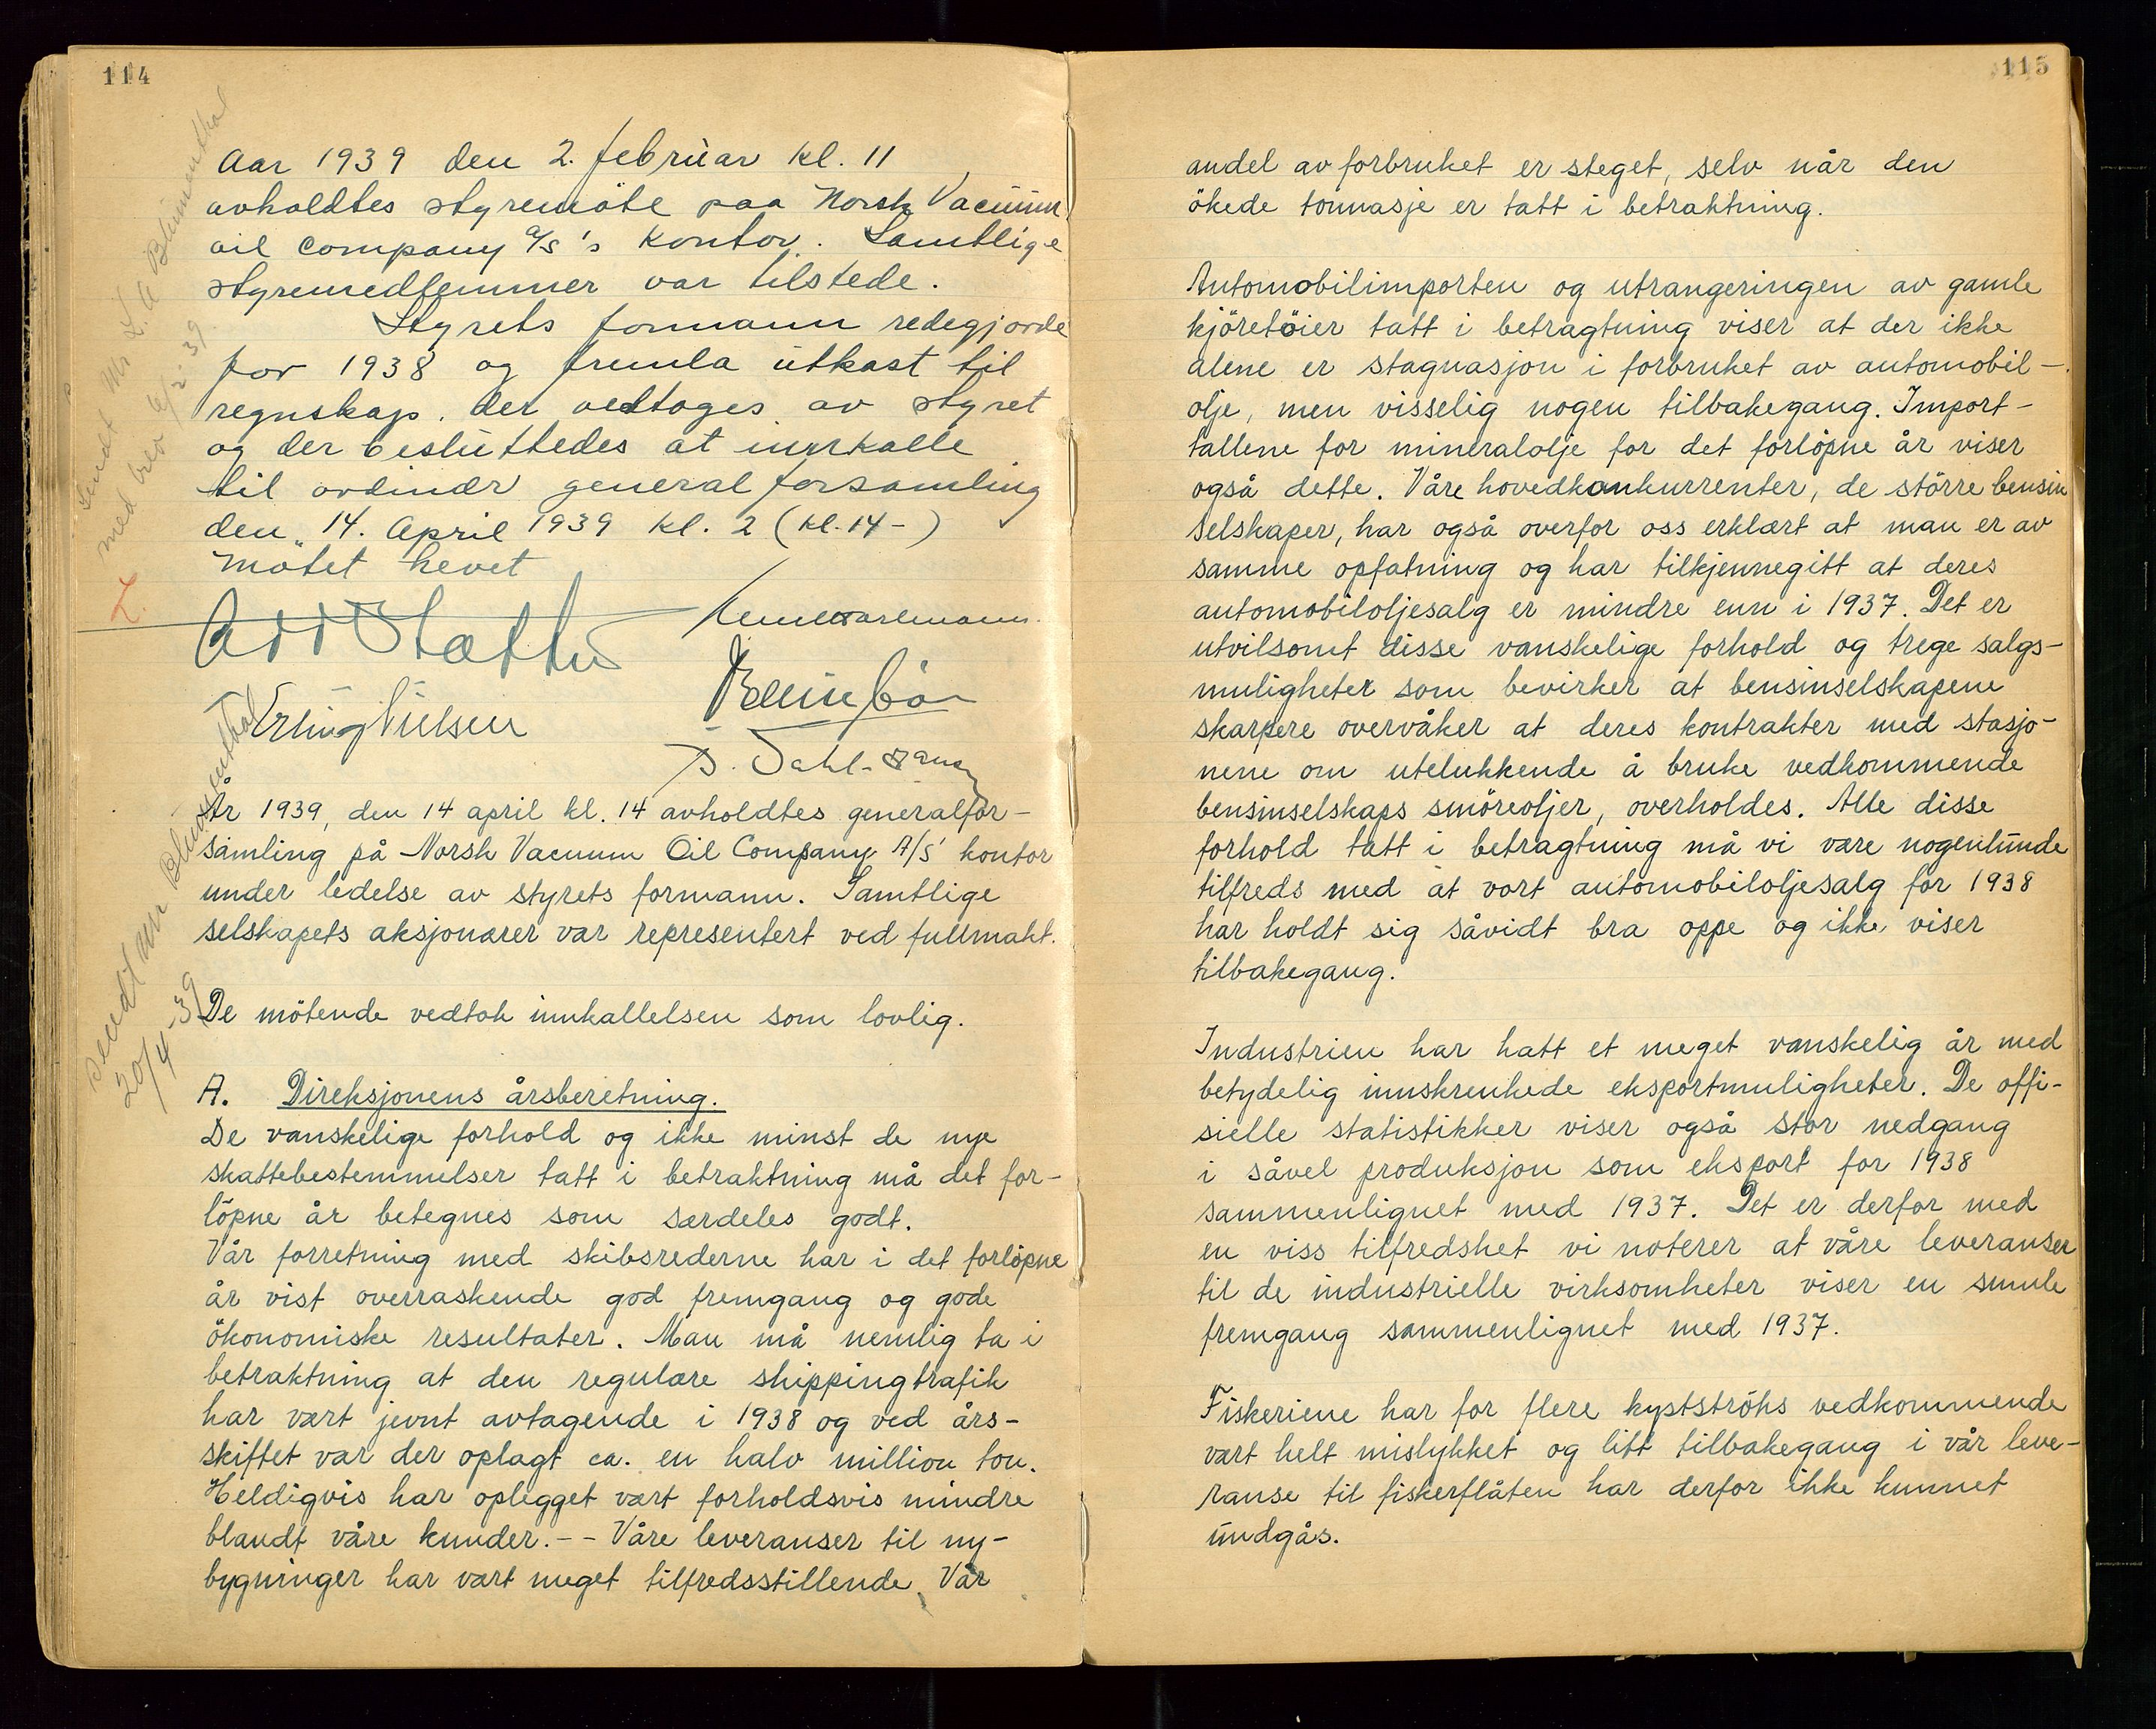 114
Aar 1939 den 2. februar kl. 11
avholdtes styremöte paa Norsk Vacuum
oil company A/S's kontor. Samtlige
styremedlemmer var tilstede.
Styrets formann redegjorde
for 1938 og fremla utkast til
regnskap. der vedtoges av styret
og der besluttedes at innkalle
til ordinær general forsamling
den 14. April 1939 kl. 2 (kl. 14-)
Mötet hevet
Erling Nielsen
B. Dahl-Hansen
Sendt Mr L. A Blumenthal
med brev 6/2-39
År 1939, den 14 april kl. 14 avholdtes generalfor-
samling på Norsk Vacuum Oil Company A/S' kontor
under ledelse av styrets formann. Samtlige
selskapets aksjonærer var representert ved fullmakt.
De mötende vedtok innkallelsen som lovlig.
Sendt Mr Blumenthal
20/4-39
A. Direksjonens årsberetning.
De vanskelige forhold og ikke minst de nye
skattebestemmelser tatt i betraktning må det for-
löpne år betegnes som særdeles godt.
Vår forretning med skibsrederne har i det forlöpne
år vist overraskende god fremgang og gode
ökonomiske resultater. Man må nemlig ta i
betraktning at den regulære shippingtrafik
har vært jevnt avtagende i 1938 og ved års-
skiftet var der oplagt ca. en halv million ton.
Heldigvis har oplegget vært forholdsvis mindre
blandt våre kunder. -- Våre leveranser til ny-
bygninger har vært meget tilfredsstillende. Vår
115
andel av forbruket er steget, selv når den
ökede tonnasje er tatt i betraktning.
Automobilimporten og utrangeringen av gamle
kjöretöier tatt i betragtning viser at der ikke
alene er stagnasjon i forbruket av automobil-
olje, men visselig nogen tilbakegang. Import-
tallene for mineralolje for det forlöpne år viser
også dette. Våre hovedkonkurrenter, de större bensin
selskaper, har også overfor oss erklært at man er av
samme opfatning og har tilkjennegitt at deres
automobiloljesalg er mindre enn i 1937. Det er
utvilsomt disse vanskelige forhold og trege salgs-
muligheter som bevirker at bensinselskapene
skarpere overvåker at deres kontrakter med stasjo-
nene om utelukkende å bruke vedkommende
bensinselskaps smöreoljer, overholdes. Alle disse
forhold tatt i betragtning må vi være nogenlunde
tilfreds med at vort automobiloljesalg for 1938
har holdt sig såvidt bra oppe og ikke viser
tilbakegang.
Industrien har hatt et meget vanskelig år med
betydelig innskrenkede eksportmuligheter. De offi-
sielle statistikker viser også stor nedgang
i såvel produksjon som eksport for 1938
sammenlignet med 1937. Det er derfor med
en viss tilfredshet vi noterer at våre leveranser
til de industrielle virksomheter viser en smule
fremgang sammenlignet med 1937.
Fiskeriene har for flere kystströks vedkommende
vært helt mislykket og litt tilbakegang i vår leve-
ranse til fiskerflåten har derfor ikke kunnet
undgås.